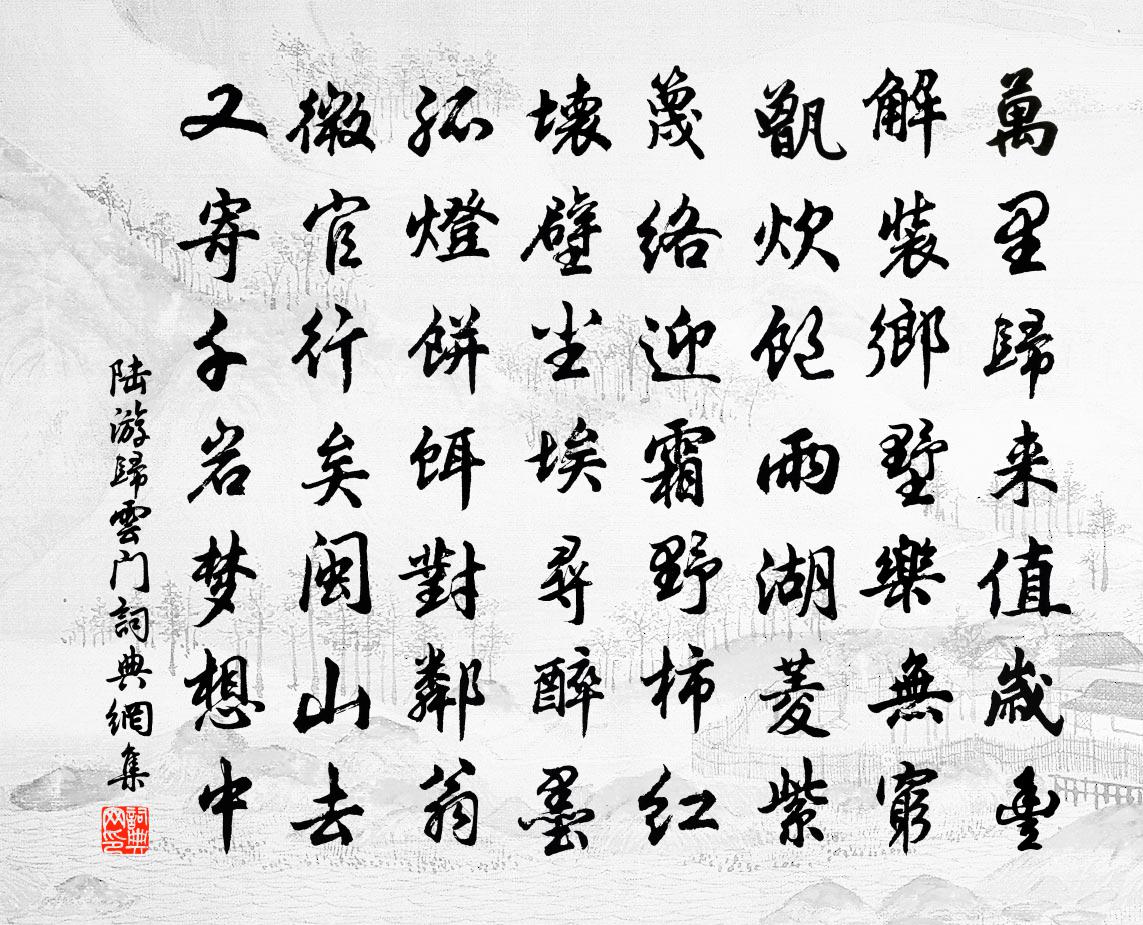 萬里歸来值歲豊
解裝鄉墅樂無窮
甑炊飽雨湖菱紫
篾络迎霜野柿红
壊壁尘埃尋醉墨
孤燈餅餌對鄰翁
微官行矣闽山去
又寄千岩梦想中
陆游歸雲门詞典網集
詞典网印